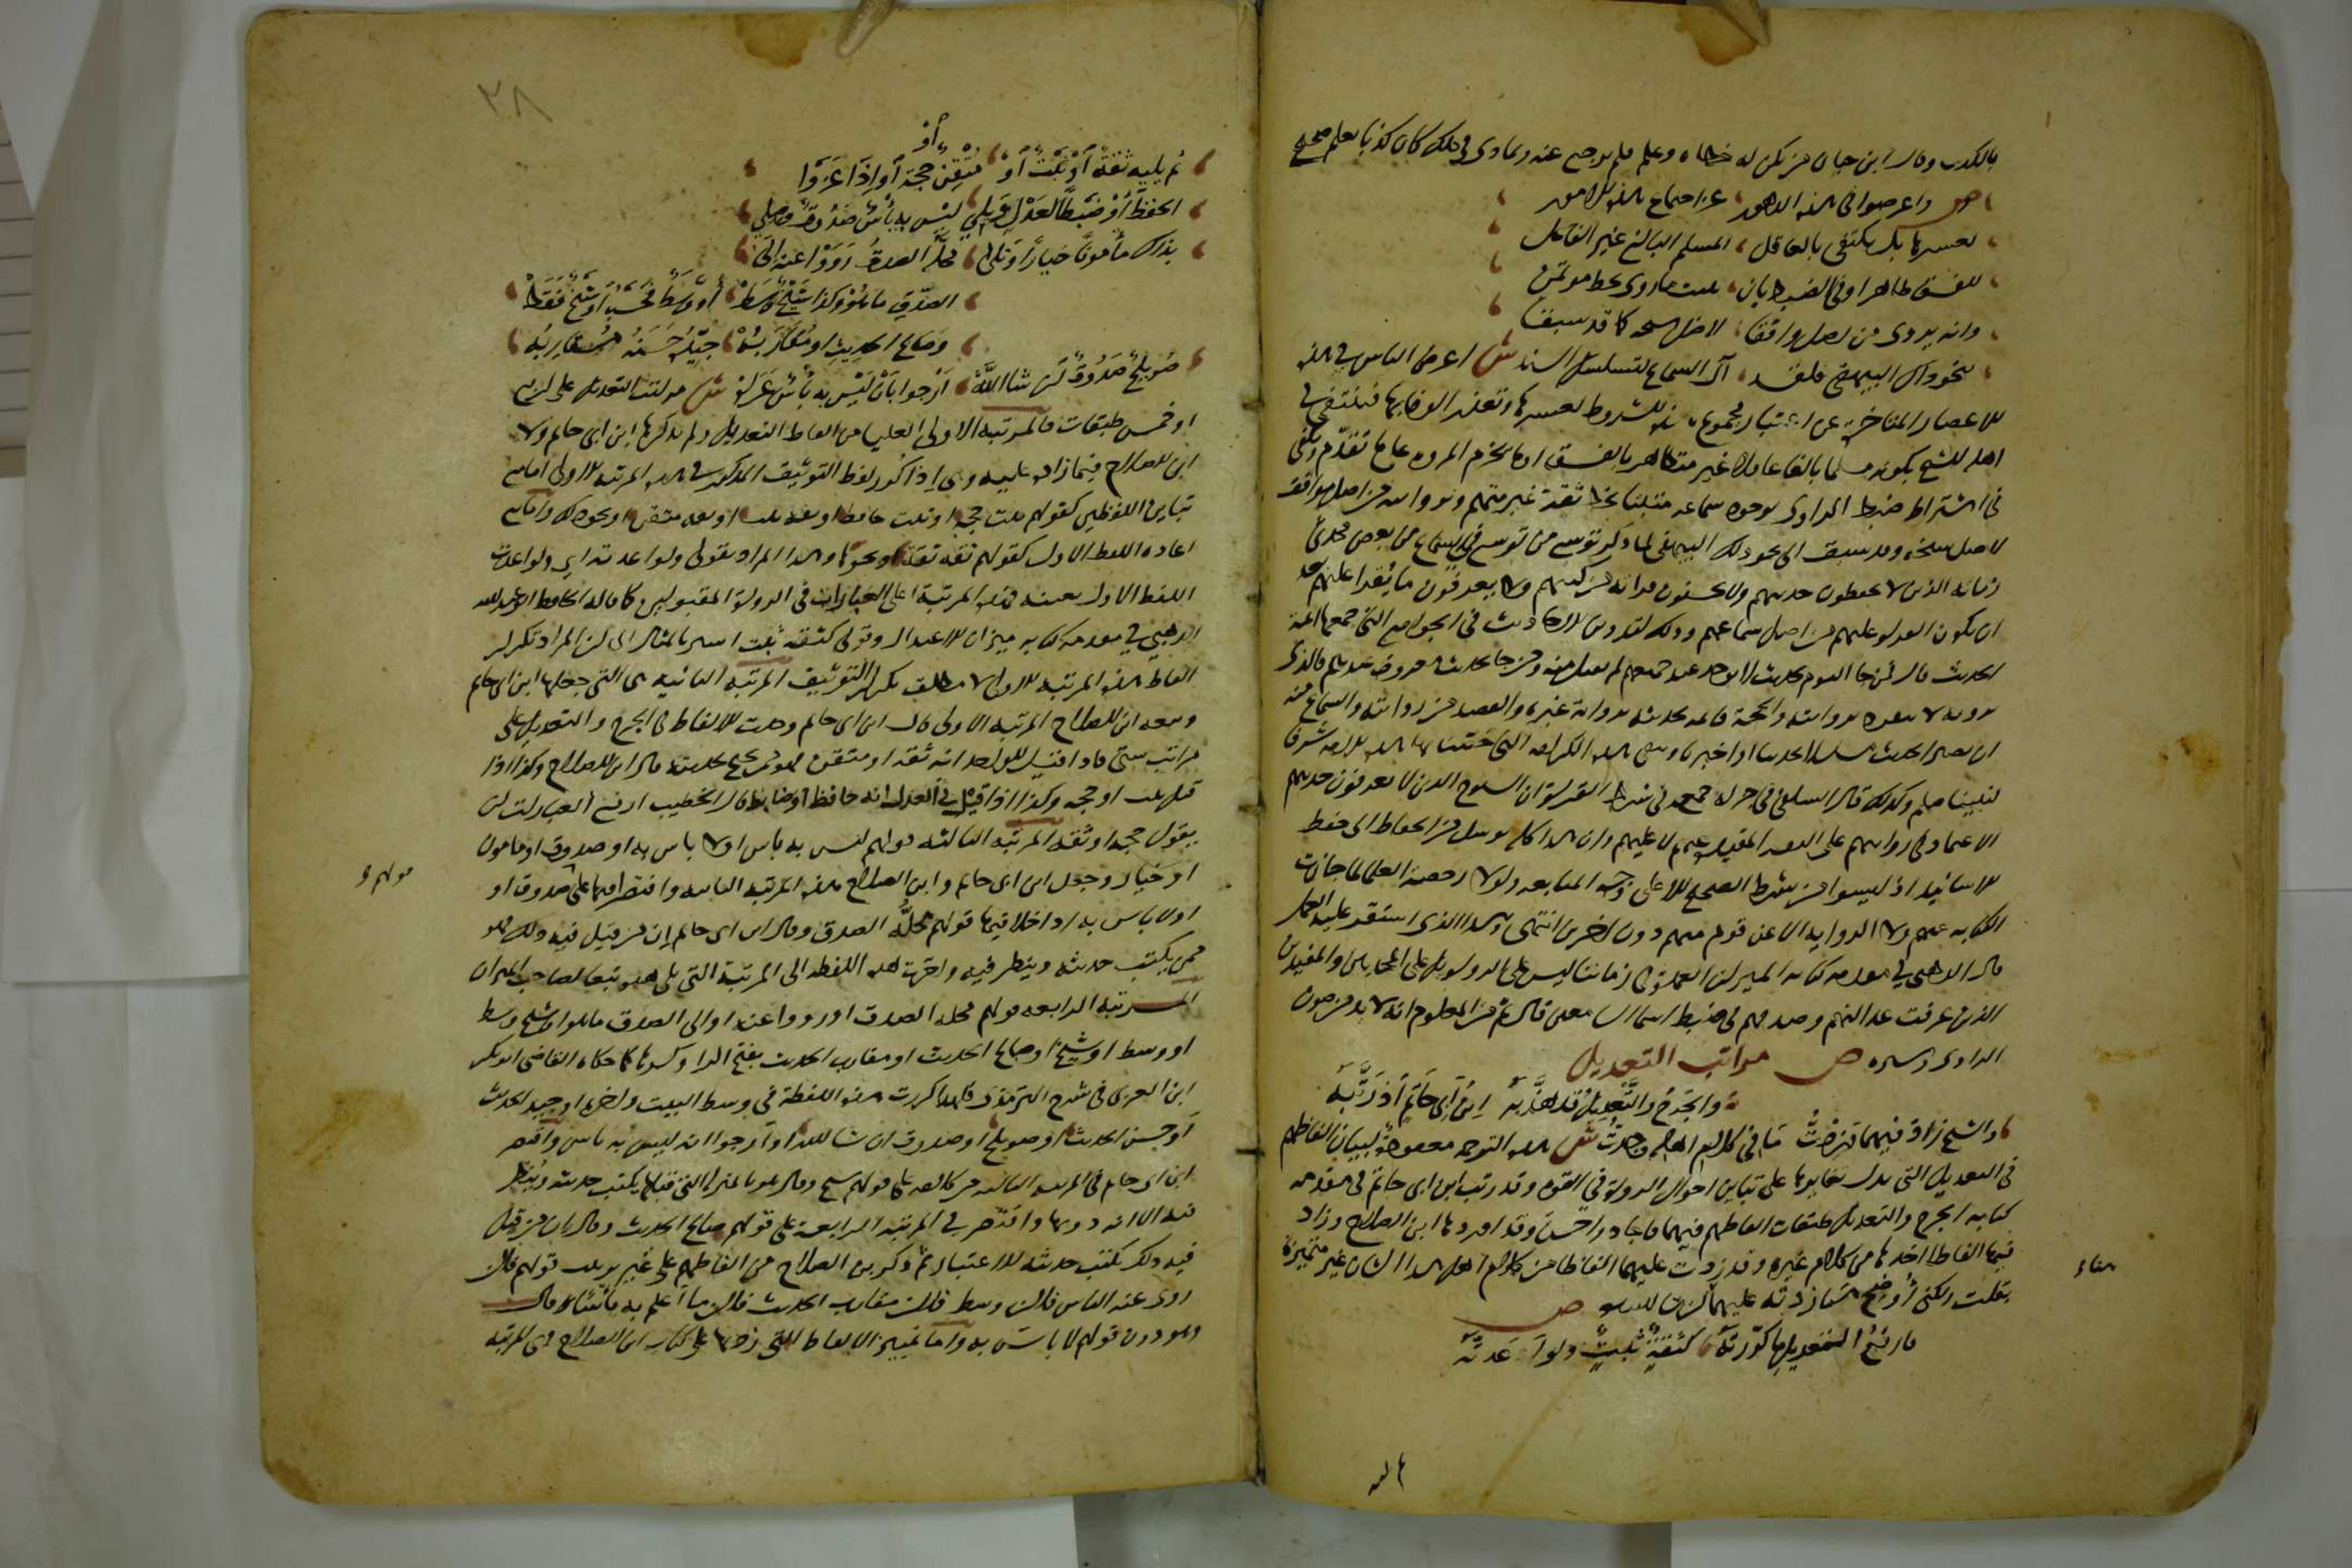 بالكذب وقال ابن حبان من بين له خطاه وعلم فلم يرجع عنه وتمادى في ذلك كان كذابا بعلم صحيح
ص واعرضوا في هذه الدهور عن اجتماع هذه الامور
لعسرها بل يكتفى بالعاقل المسلم البالغ غير الفاعل
للفسق ظاهرا وفي الضبط بان يثبت ما روى بخط موتمن
وانه يروي من اصل وافقا لاصل شيخه كما قد سبقا
لنحو ذاك البيهقي فلقد آل السماع لتسلسل السند ش اعرض الناس في هذه
الاعصار المتاخرة عن اعتبار مجموع هذه الشروط لعسرها وتعذر الوفا بها فيكتفى في
اهلية الشيخ بكونه مسلما بالغا عاقلا غير متظاهر بالفسق وما يخرم المروه على ما تقدم ويكتفى
في اشتراط ضبط الراوي بوجود سماعه مثبتا بخط ثقة غير متهم وبروايته من اصل موافق
لاصل شيخه وقد سبق الى نحو ذلك البيهقي لما ذكر توسع من توسع في السماع من بعض محدثي
زمانه الذين لا يحفظون حديثهم ولا يحسنون قراته من كتبهم ولا يعرفون ما يقرا عليهم بعد
ان يكون القراة عليهم من اصل سماعهم وذلك لتدوين الاحاديث في الجوامع التي جمعها ائمة
الحديث قال فمن جا اليوم بحديث لا يوجد عند جميعهم لم يقبل منه ومن جا بحديث معروف عندهم فالذي
يرويه لا ينفرد بروايته والحجة قائمة بحديثه برواية غيره والقصد من روايته والسماع منه
ان يصير الحديث مسلسلا بحدثنا او اخبرنا وتبقى هذه الكرامة التي خصت بها هذه الامة شرفا
لنبينا صلم وكذلك قال السلفي في جزء له جمعه في شرط القراة ان الشيوخ الذين لا يعرفون حديثهم
الاعتماد في روايتهم على الثقة المقيد عنهم لا عليهم وان هذا كله توسل من الحفاظ الى حفظ
الاسانيد اذ ليسوا من شرط الصحيح الا على وجه المتابعة ولولا رخصة العلما لما جازت
الكتابة عنهم ولا الرواية الا عن قوم منهم دون اخرين انتهى وهذا الذي استقر عليه العمل
قال الذهبي في مقدمة كتابه الميزان العمدة في زماننا ليس على الرواة بل على المحدثين والمفيدين
الذين عرفت عدالتهم وصدقهم في ضبط اسما السامعين قال ثم من المعلوم انه لا بد من صون
الراوي وستره ص مراتب التعديل
والجرح والتعديل قد هذبه ابن ابي حاتم اذ رتبه
والشيخ زاد فيهما وزدت ما في كلام اهله وجدت ش هذه الترجمه معقودة لبيان الفاظهم
في التعديل التي يدل تغايرها على تباين احوال الرواة في القوة وقد رتب ابن ابي حاتم في مقدمة
كتابه الجرح والتعديل طبقات الفاظهم فيهما فاجاد واحسن وقد اوردها ابن الصلاح وزاد
فيها الفاظا اخذها من كلام غيره وقد زدت عليهما الفاظا من كلام اهل هذا الشان غير متميزة
بقلت ولكني اوضح ما زدته عليهما هنا ص
فارفع التعديل ما كررته كثقة ثبت ولو اعدته
٣٨
ثم يليه ثقة او ثبت او متقن او حجة او اذا عزوا
الحفظ او ضبطا لعدل ويلي ليس به باس صدوق وصل
بذاك مأمونا خيارا وتلا محله الصدق رووا عنه الى
الصدق ما هو وكذا شيخ وسط او وسط فحسب او شيخ فقط
وصالح الحديث او مقاربه جيده حسنه مقاربه
صويلح صدوق ان شا الله ارجوا بان ليس به باس عراه ش مراتب التعديل على اربع
او خمس طبقات فالمرتبة الاولى العليا من الفاظ التعديل ولم يذكرها ابن ابي حاتم ولا
ابن الصلاح فيما زاده عليه وهي اذا كرر لفظ التوثيق المذكور في هذه المرتبة الاولى اما مع
تباين اللفظين كقولهم ثبت حجة او ثبت حافظ او ثقة ثبت او ثقة متقن او نحو ذلك واما مع
اعادة اللفظ الاول كقولهم ثقة ثقة ونحوها وهذا المراد بقولي ولو اعدته اي ولو اعدت
اللفظ الاول بعينه فهذه المرتبة اعلى العبارات في الرواة المقبولين كما قاله الحافظ ابو عبد الله
الذهبي في مقدمة كتابه ميزان الاعتدال وقولي كثقة ثبت اشير بالمثال الى ان المراد تكرار
الفاظ هذه المرتبة الاولى لا مطلق تكرار التوثيق المرتبة الثانية هي التي جعلها ابن ابي حاتم
وتبعه ابن الصلاح المرتبة الاولى قال ابن ابي حاتم وجدت الالفاظ في الجرح والتعديل على
مراتب شتى فاذا قيل للواحد انه ثقة او متقن فهو ممن يحتج بحديثه قال ابن الصلاح وكذا اذا
قيل ثبت او حجة وكذا اذا قيل في العدل انه حافظ او ضابط قال الخطيب ارفع العبارات ان
يقول حجة او ثقة المرتبة الثالثة قولهم ليس به باس او لا باس به او صدوق او مامون
او خيار وجعل ابن ابي حاتم وابن الصلاح هذه المرتبة الثانية واقتصرا فيها على صدوق او
او لا باس به وادخلا فيها قولهم محله الصدق وقال ابن ابي حاتم ان من قيل فيه ذلك فهو
ممن يكتب حديثه وينظر فيه واخرت هذه اللفظة الى المرتبة التي تلي هذه تبعا لصاحب الميزان
المرتبة الرابعة قولهم محله الصدق او رووا عنه او الى الصدق ما هو او شيخ وسط
او وسط او شيخ او صالح الحديث او مقارب الحديث بفتح الرا وكسرها كما حكاه القاضي ابو بكر
ابن العربي في شرح الترمذي فلهذا كررت هذه اللفظة في وسط البيت واخره او جيد الحديث
او حسن الحديث او صويلح او صدوق ان شا الله او ارجوا انه ليس به باس واقتصر
ابن ابي حاتم في المرتبة الثالثة من كلامه على قولهم شيخ وقال هو بالمنزلة التي قبلها يكتب حديثه وينظر
فيه الا انه دونها واقتصر في المرتبة الرابعة على قولهم صالح الحديث وقال ان من قيل
فيه ذلك يكتب حديثه للاعتبار ثم ذكر ابن الصلاح من الفاظهم على غير ترتيب قولهم فلان
روى عنه الناس فلان وسط فلان مقارب الحديث فلان ما اعلم به باسا قال
وهو دون قولهم لا باس به واما تمييز الالفاظ التي زدتها على كتاب ابن الصلاح فهي المرتبة